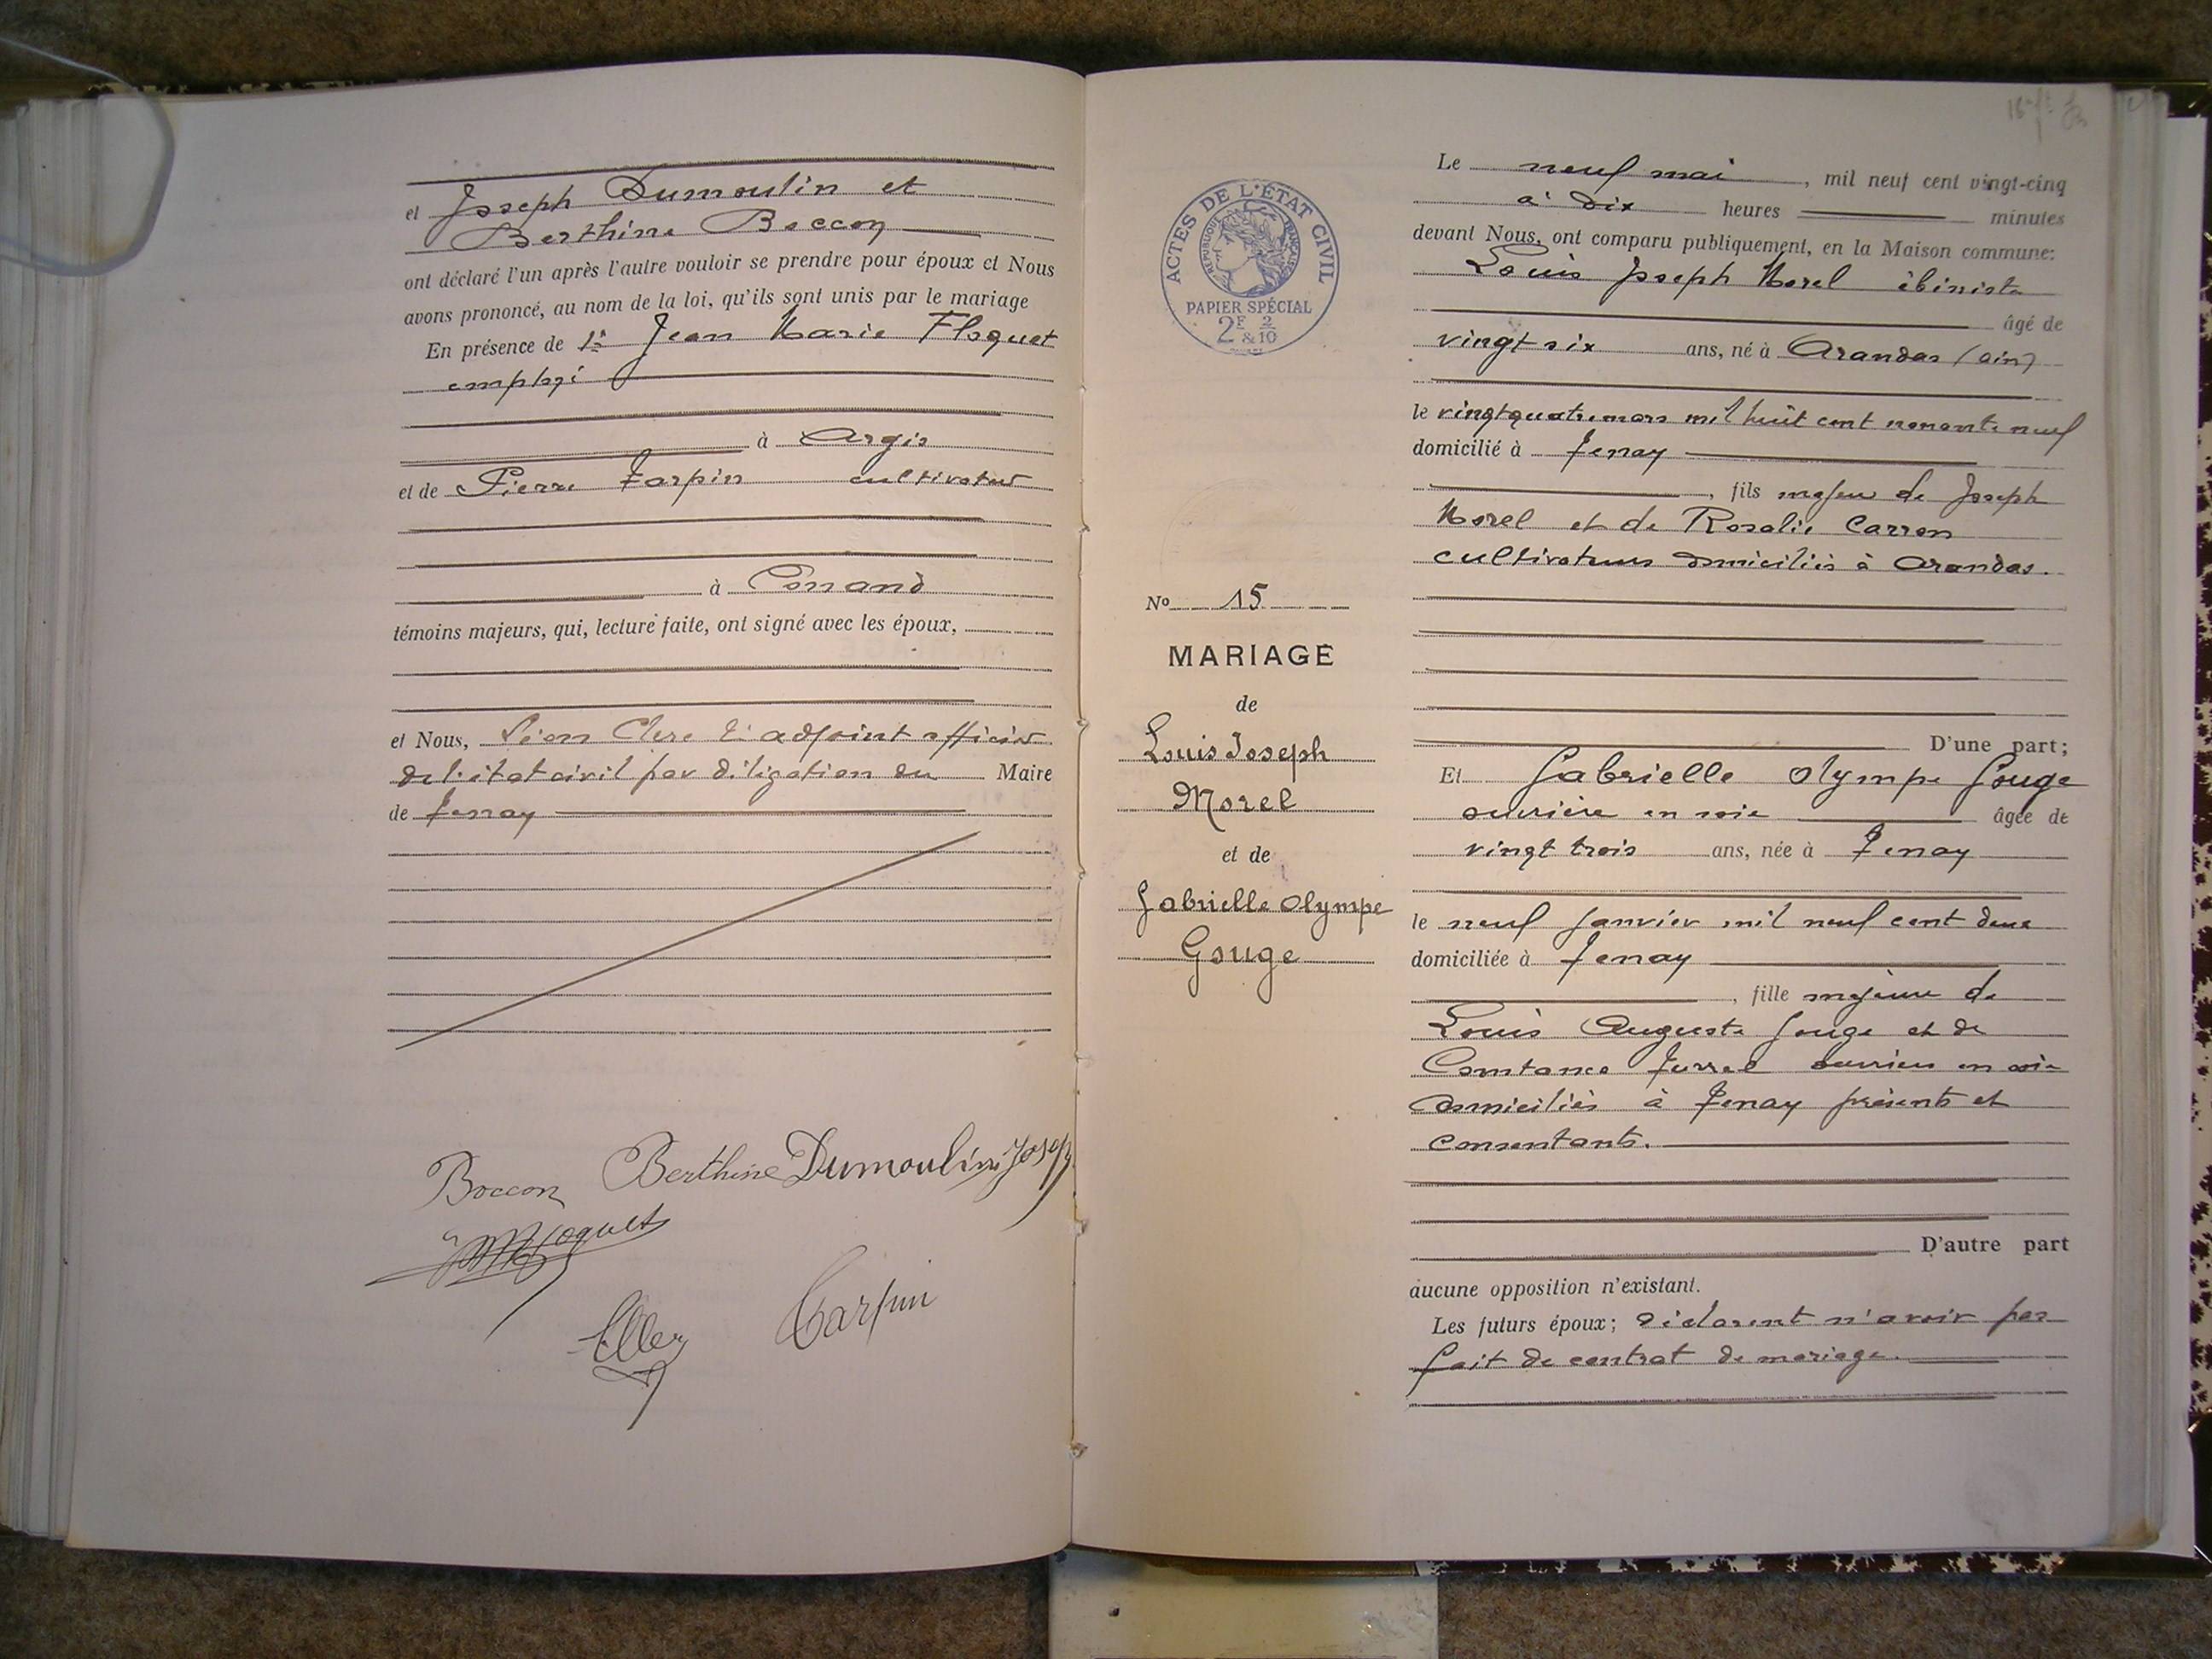 et Joseph Dumoulin et
Berthine Boccon
ont déclaré l'un après l'autre vouloir se prendre pour époux et Nous
avons prononcé, au nom de la loi, qu'ils sont unis par le mariage
En présence de 1° Jean Marie Floquet
employé
à Argis
et de Pierre Tarpin cultivateur
à Conand
témoins majeurs, qui, lecture faite, ont signé avec les époux,
et Nous, Léon Clerc adjoint officier
de l'état civil par délégation du Maire
de Tenay
Boccon Berthine Dumoulin Joseph
Floquet
Tarpin
ACTES DE L'ÉTAT CIVIL
RÉPUBLIQUE FRANÇAISE
PAPIER SPÉCIAL
2F 2
&10
No 15
MARIAGE
de
Louis Joseph
Morel
et de
Gabrielle Olympe
Gouge
Le neuf mai, mil neuf cent vingt-cinq
à dix heures minutes
devant Nous, ont comparu publiquement, en la Maison commune:
Louis Joseph Morel ébéniste
âgé de
vingt six ans, né à Arandas (ain)
le vingt quatre mars mil huit cent nonante neuf
domicilié à Tenay
, fils majeur de Joseph
Morel et de Rosalie Carron
cultivateurs domiciliés à Arandas.
D'une part;
Et Gabrielle Olympe Gouge
ouvrière en soie âgée de
vingt trois ans, née à Tenay
le neuf janvier mil neuf cent deux
domiciliée à Tenay
, fille majeure de
Louis Auguste Gouge et de
Constance Jurrel ouvriers en soie
domiciliés à Tenay présents et
consentants.
D'autre part
aucune opposition n'existant.
Les futurs époux; déclarent n'avoir pas
fait de contrat de mariage.